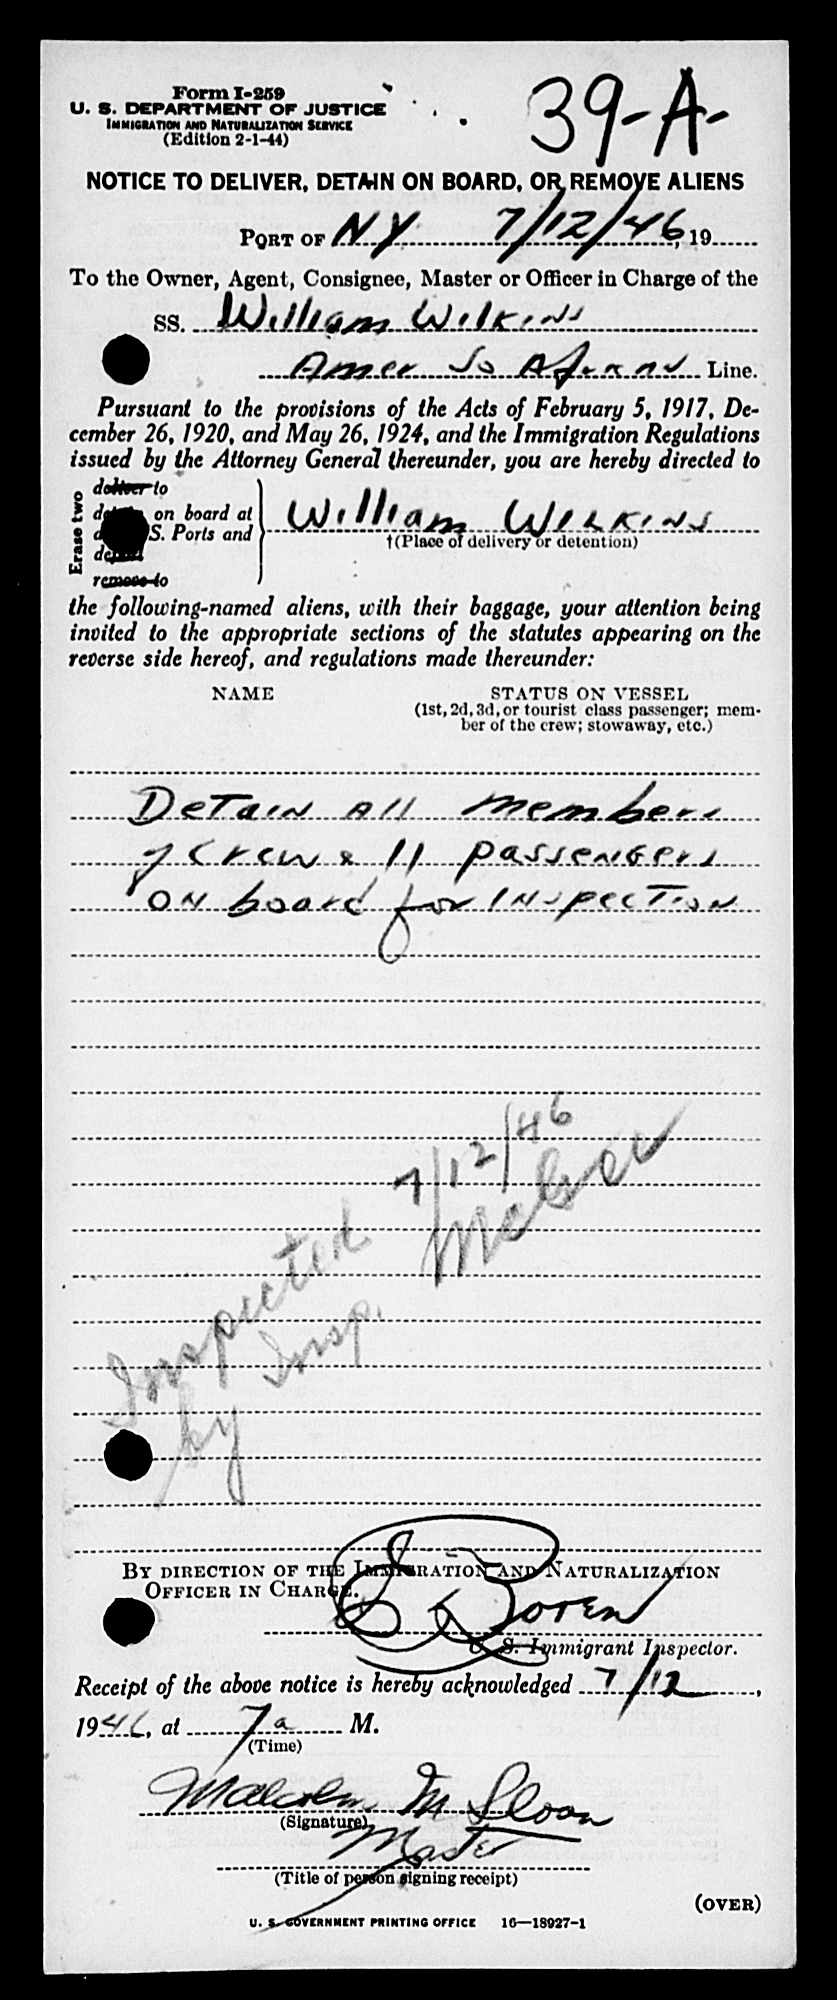 Form I-259
U. S. DEPARTMENT OF JUSTICE
IMMIGRATION AND NATURALIZATION SERVICE
(Edition 2-1-44)
39-A-
NOTICE TO DELIVER, DETAIN ON BOARD, OR REMOVE ALIENS
PORT OF NY 7/12/46, 19
To the Owner, Agent, Consignee, Master or Officer in Charge of the
SS. William Wilkins
Amer So African Line.
Pursuant to the provisions of the Acts of February 5, 1917, De-
cember 26, 1920, and May 26, 1924, and the Immigration Regulations
issued by the Attorney General thereunder, you are hereby directed to
Erase two
deliver to
on board at
S. Ports and
remove to
William Wilkins
†(Place of delivery or detention)
the following-named aliens, with their baggage, your attention being
invited to the appropriate sections of the statutes appearing on the
reverse side hereof, and regulations made thereunder:
NAME STATUS ON VESSEL
(1st, 2d, 3d, or tourist class passenger; mem-
ber of the crew; stowaway, etc.)
Detain all members
of crew & 11 passengers
on board for inspection
7/12/46
Inspected
by Insp.
BY DIRECTION OF THE IMMIGRATION AND NATURALIZATION
OFFICER IN CHARGE.
Boren
U. S. Immigrant Inspector.
Receipt of the above notice is hereby acknowledged 7/12,
1946, at 7 a M.
(Time)
Malcolm M Sloan
(Signature)
Master
(Title of person signing receipt)
(OVER)
U. S. GOVERNMENT PRINTING OFFICE 16—18927-1